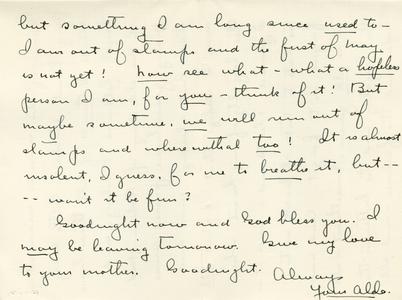 but something I am long since used to -
I am out of stamps and the first of May
is not yet! Now see what - what a hopeless
person I am, for you - think of it! But
maybe sometime, we will run out of
stamps and wherewithal too! It is almost
insolent, I guess, for me to breathe it, but --
-- won't it be fun?
Goodnight now and God bless you. I
may be leaving tomorrow. Give my love
to your mother. Goodnight.
Always
Your Aldo.